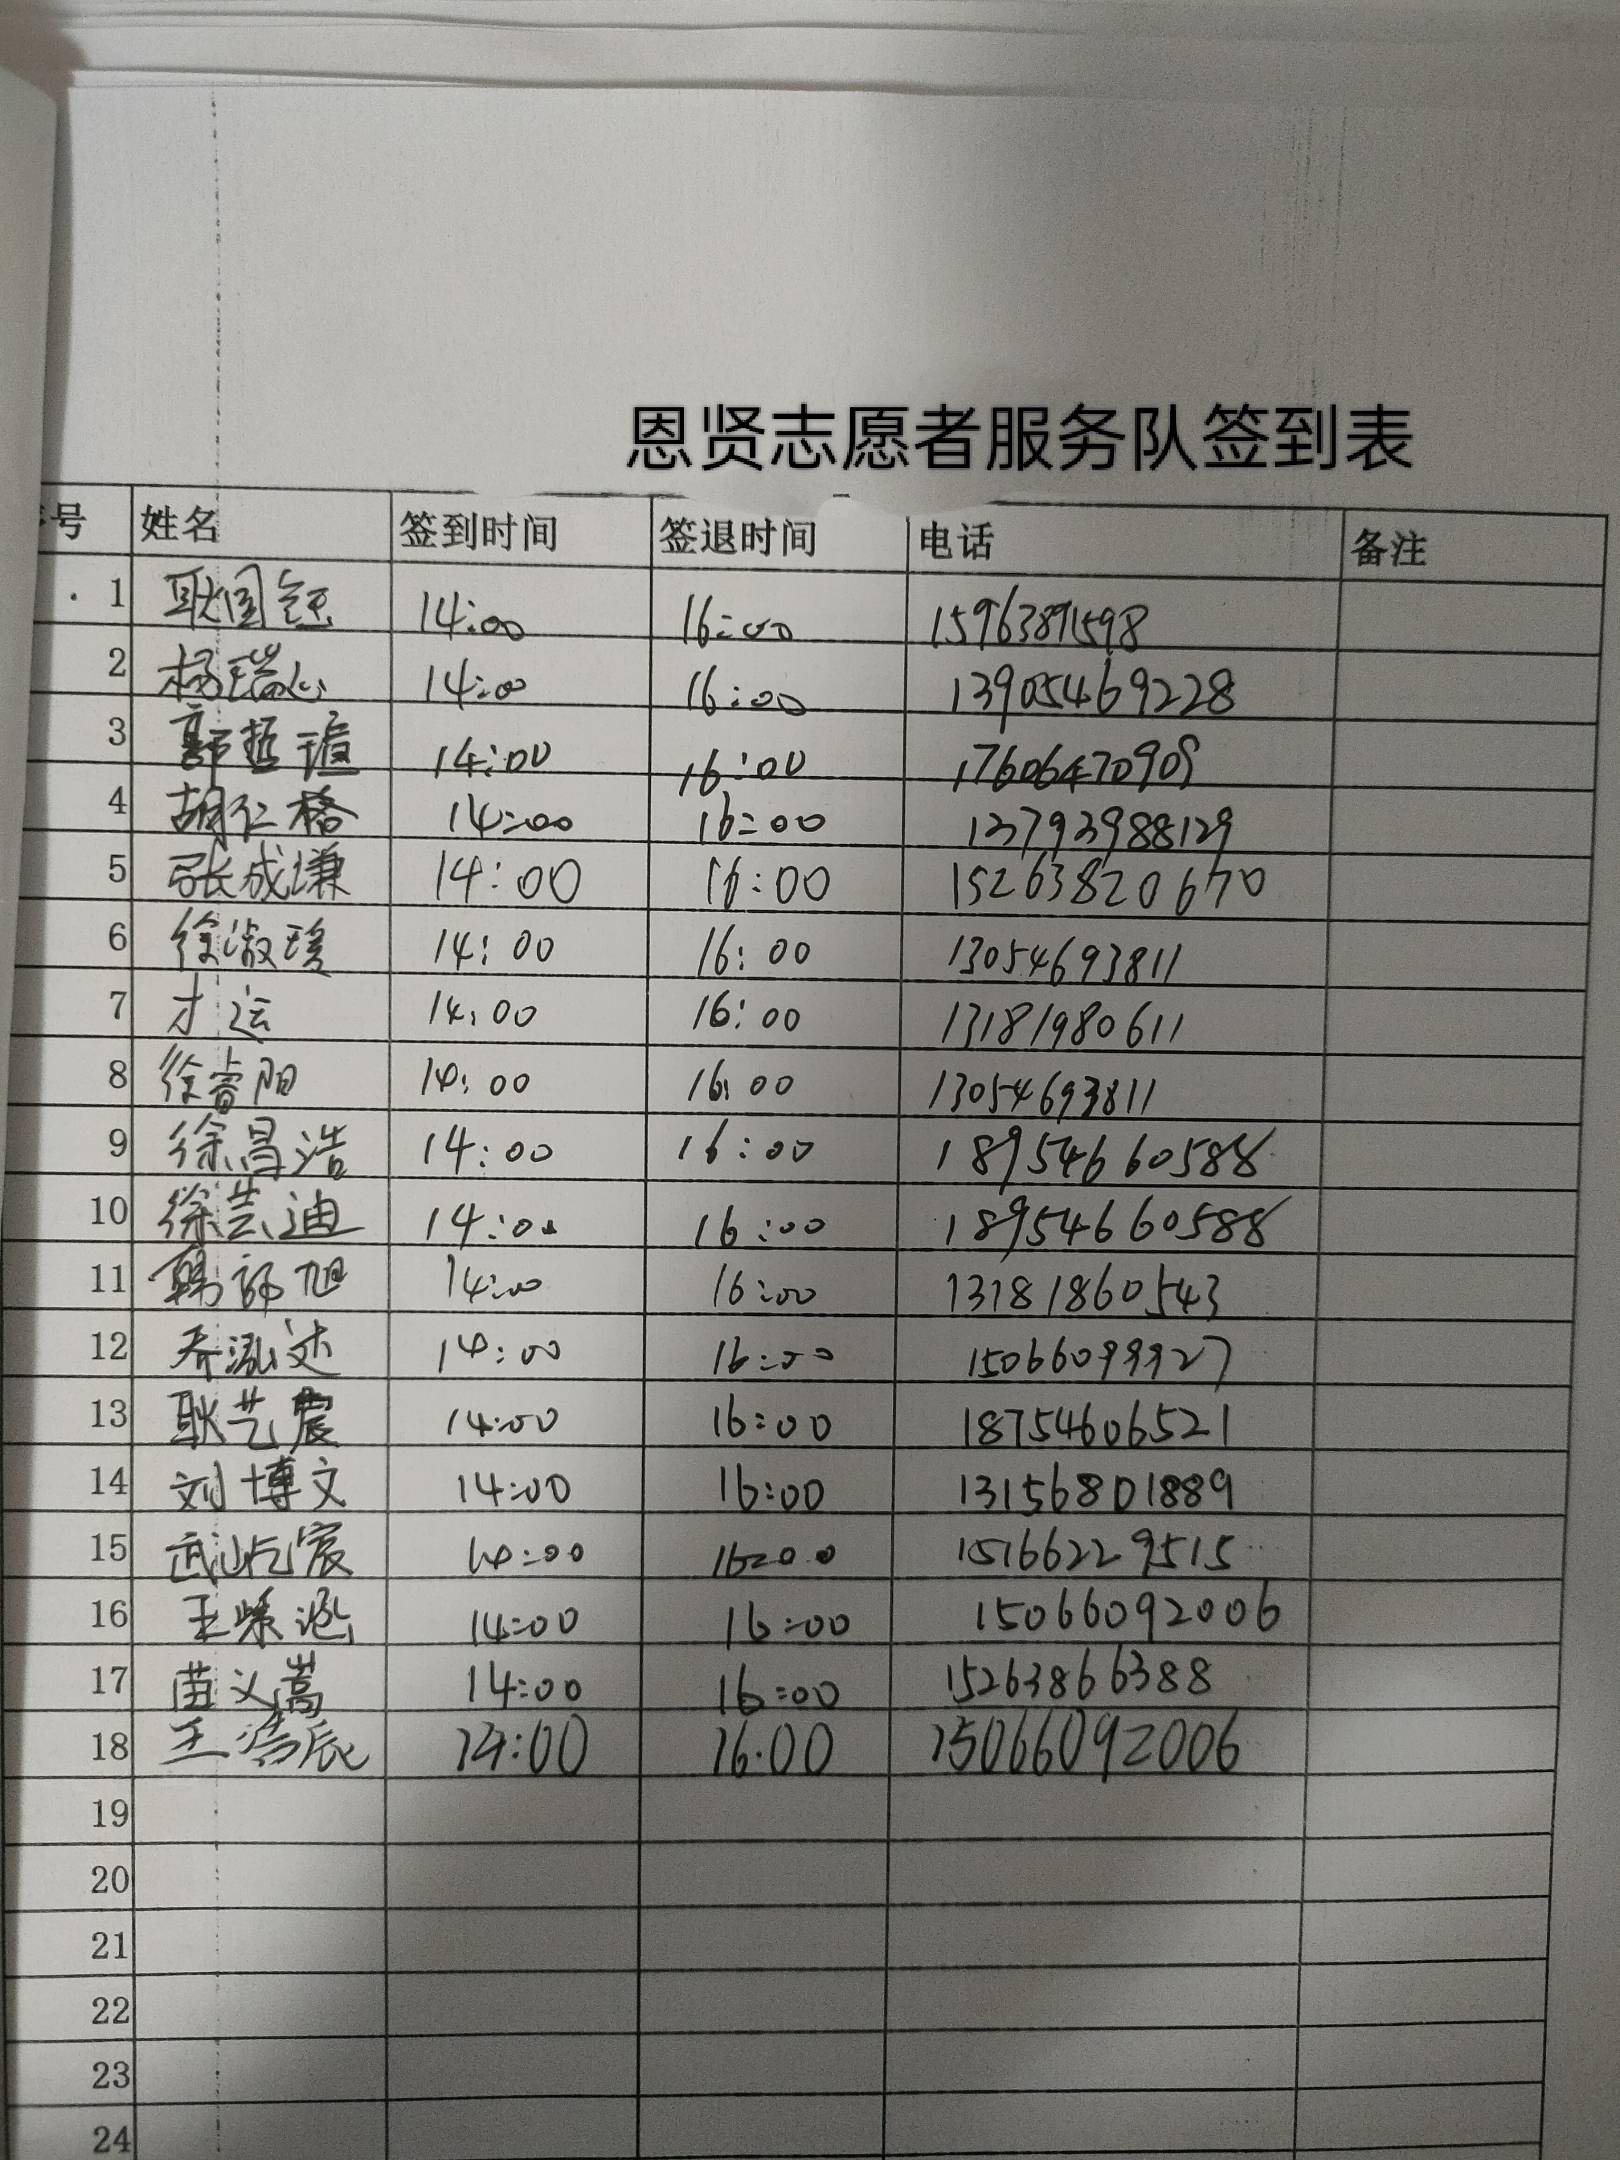 恩贤志愿者服务队签到表
号 姓名 签到时间 签退时间 电话 备注
1 耿国钰 14:00 16:00 15963891598
2 杨瑞心 14:00 16:00 13905469228
3 郭哲瑄 14:00 16:00 17606470909
4 胡仁格 14:00 16:00 13793988129
5 张成谦 14:00 16:00 15263820670
6 徐淑瑗 14:00 16:00 13054693811
7 才运 14:00 16:00 13181980611
8 徐睿阳 14:00 16:00 13054693811
9 徐昌浩 14:00 16:00 18954660588
10 徐芸迪 14:00 16:00 18954660588
11 韩 旭 14:00 16:00 13181860543
12 乔泓达 14:00 16:00 15066099927
13 耿艺震 14:00 16:00 18754606521
14 刘博文 14:00 16:00 13156801889
15 武屹宸 14:00 16:00 15166229515
16 王梓涵 14:00 16:00 15066092006
17 苗义嵩 14:00 16:00 15263866388
18 王浩辰 14:00 16.00 15066092006
19
20
21
22
23
24